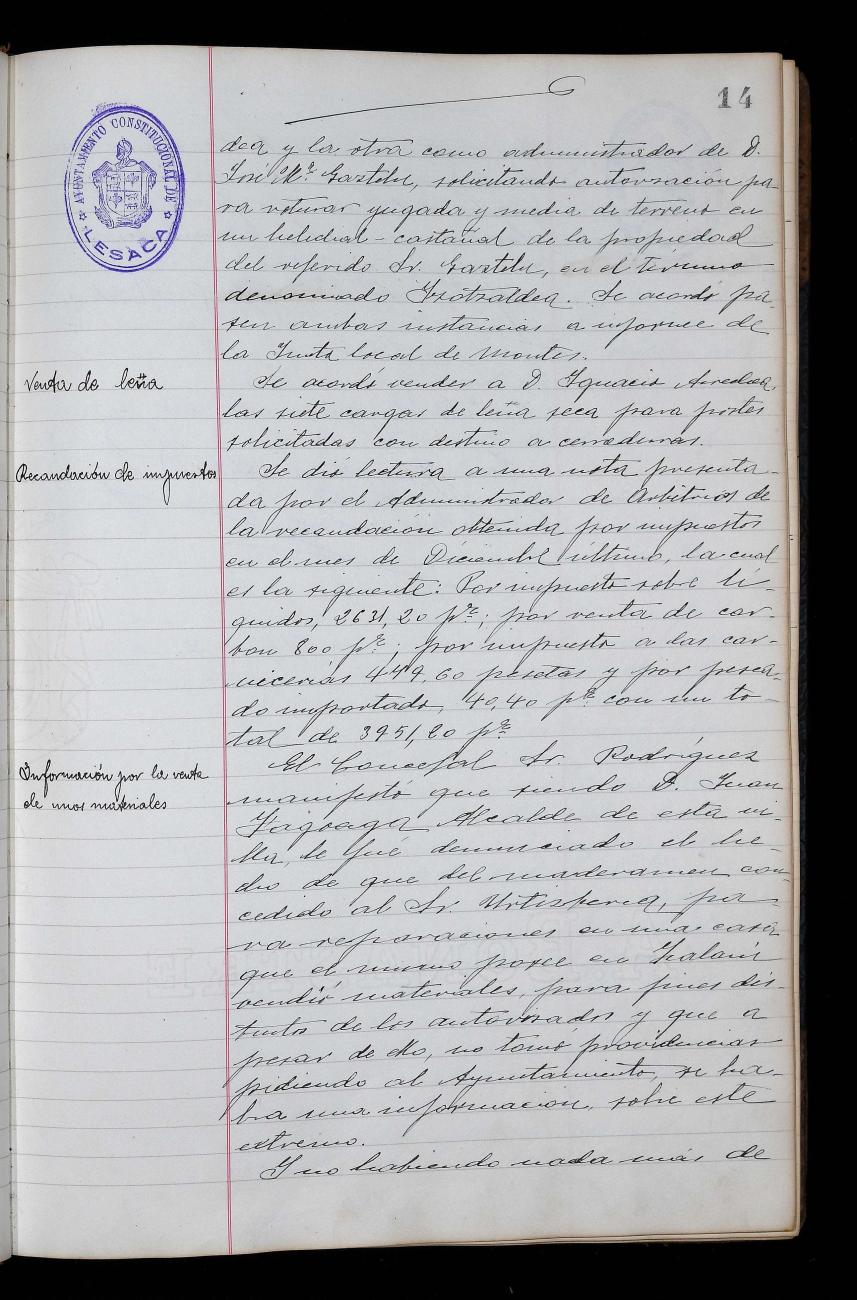 14
AYUNTAMIENTO CONSTITUCIONAL DE
LESACA
dea y la otra como administrador de D.
José Mª Gaztelu, solicitando autorización pa-
ra roturar yugada y media de terreno en
un helechal-castañal de la propiedad
del referido Sr. Gaztelu, en el término
denominado . Se acordó pa-
sen ambas instancias a informe de
la Junta local de Montes.
Venta de leña
Se acordó vender a D. Ignacio
las siete cargas de leña seca para postes
solicitadas con destino a cerraduras.
Recaudación de impuestos
Se dió lectura a una nota presenta-
da por el Administrador de Arbitrios de
la recaudación obtenida por impuestos
en el mes de Diciembre último, la cual
es la siguiente: Por impuesto sobre lí-
quidos, 2631,20 pts; por venta de car-
bon 800 pts; por impuesto a las car-
nicerías 449,60 pesetas y por pesca-
do importado, 40,40 pts con un to-
tal de 3951,20 pts.
Información por la venta
de unos materiales
El Concejal Sr. Rodríguez
manifestó que siendo D. Juan
Yagoaga Alcalde de esta vi-
lla, le fué denunciado el he-
cho de que del maderamen con-
cedido al Sr. Urtizberea, pa-
ra reparaciones en una casa
que el mismo posee en Zalain
vendió materiales, para fines dis-
tintos de los autorizados y que a
pesar de ello, no tomó providencias
pidiendo al Ayuntamiento, se ha-
ba una información, sobre este
extremo.
Y no habiendo nada más de